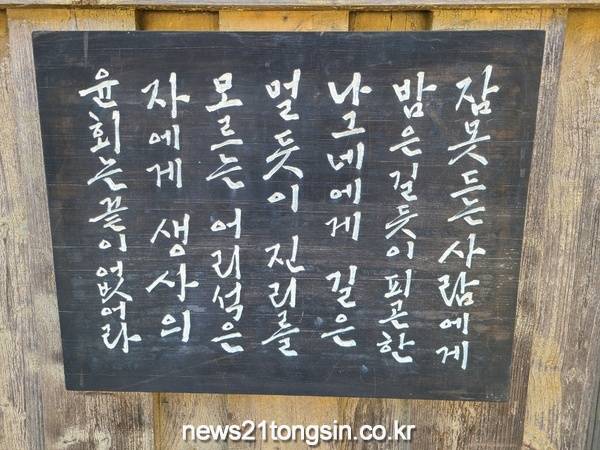 잠못 드는 사람에게
밤은 길듯이 피곤한
나그네에게 길은
멀듯이 진리를
모르는 어리석은
자에게 생사의
윤회는 끝이 없어라
news21tongsin.co.kr